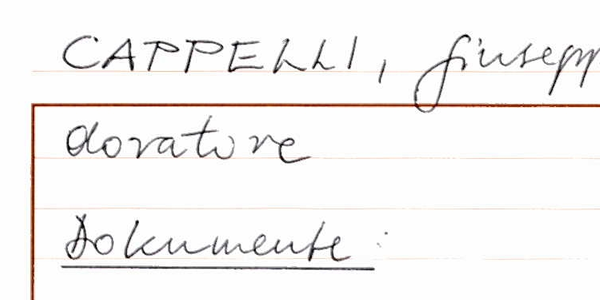 CAPPELLI, Giusepp
doratore
Dokumente: